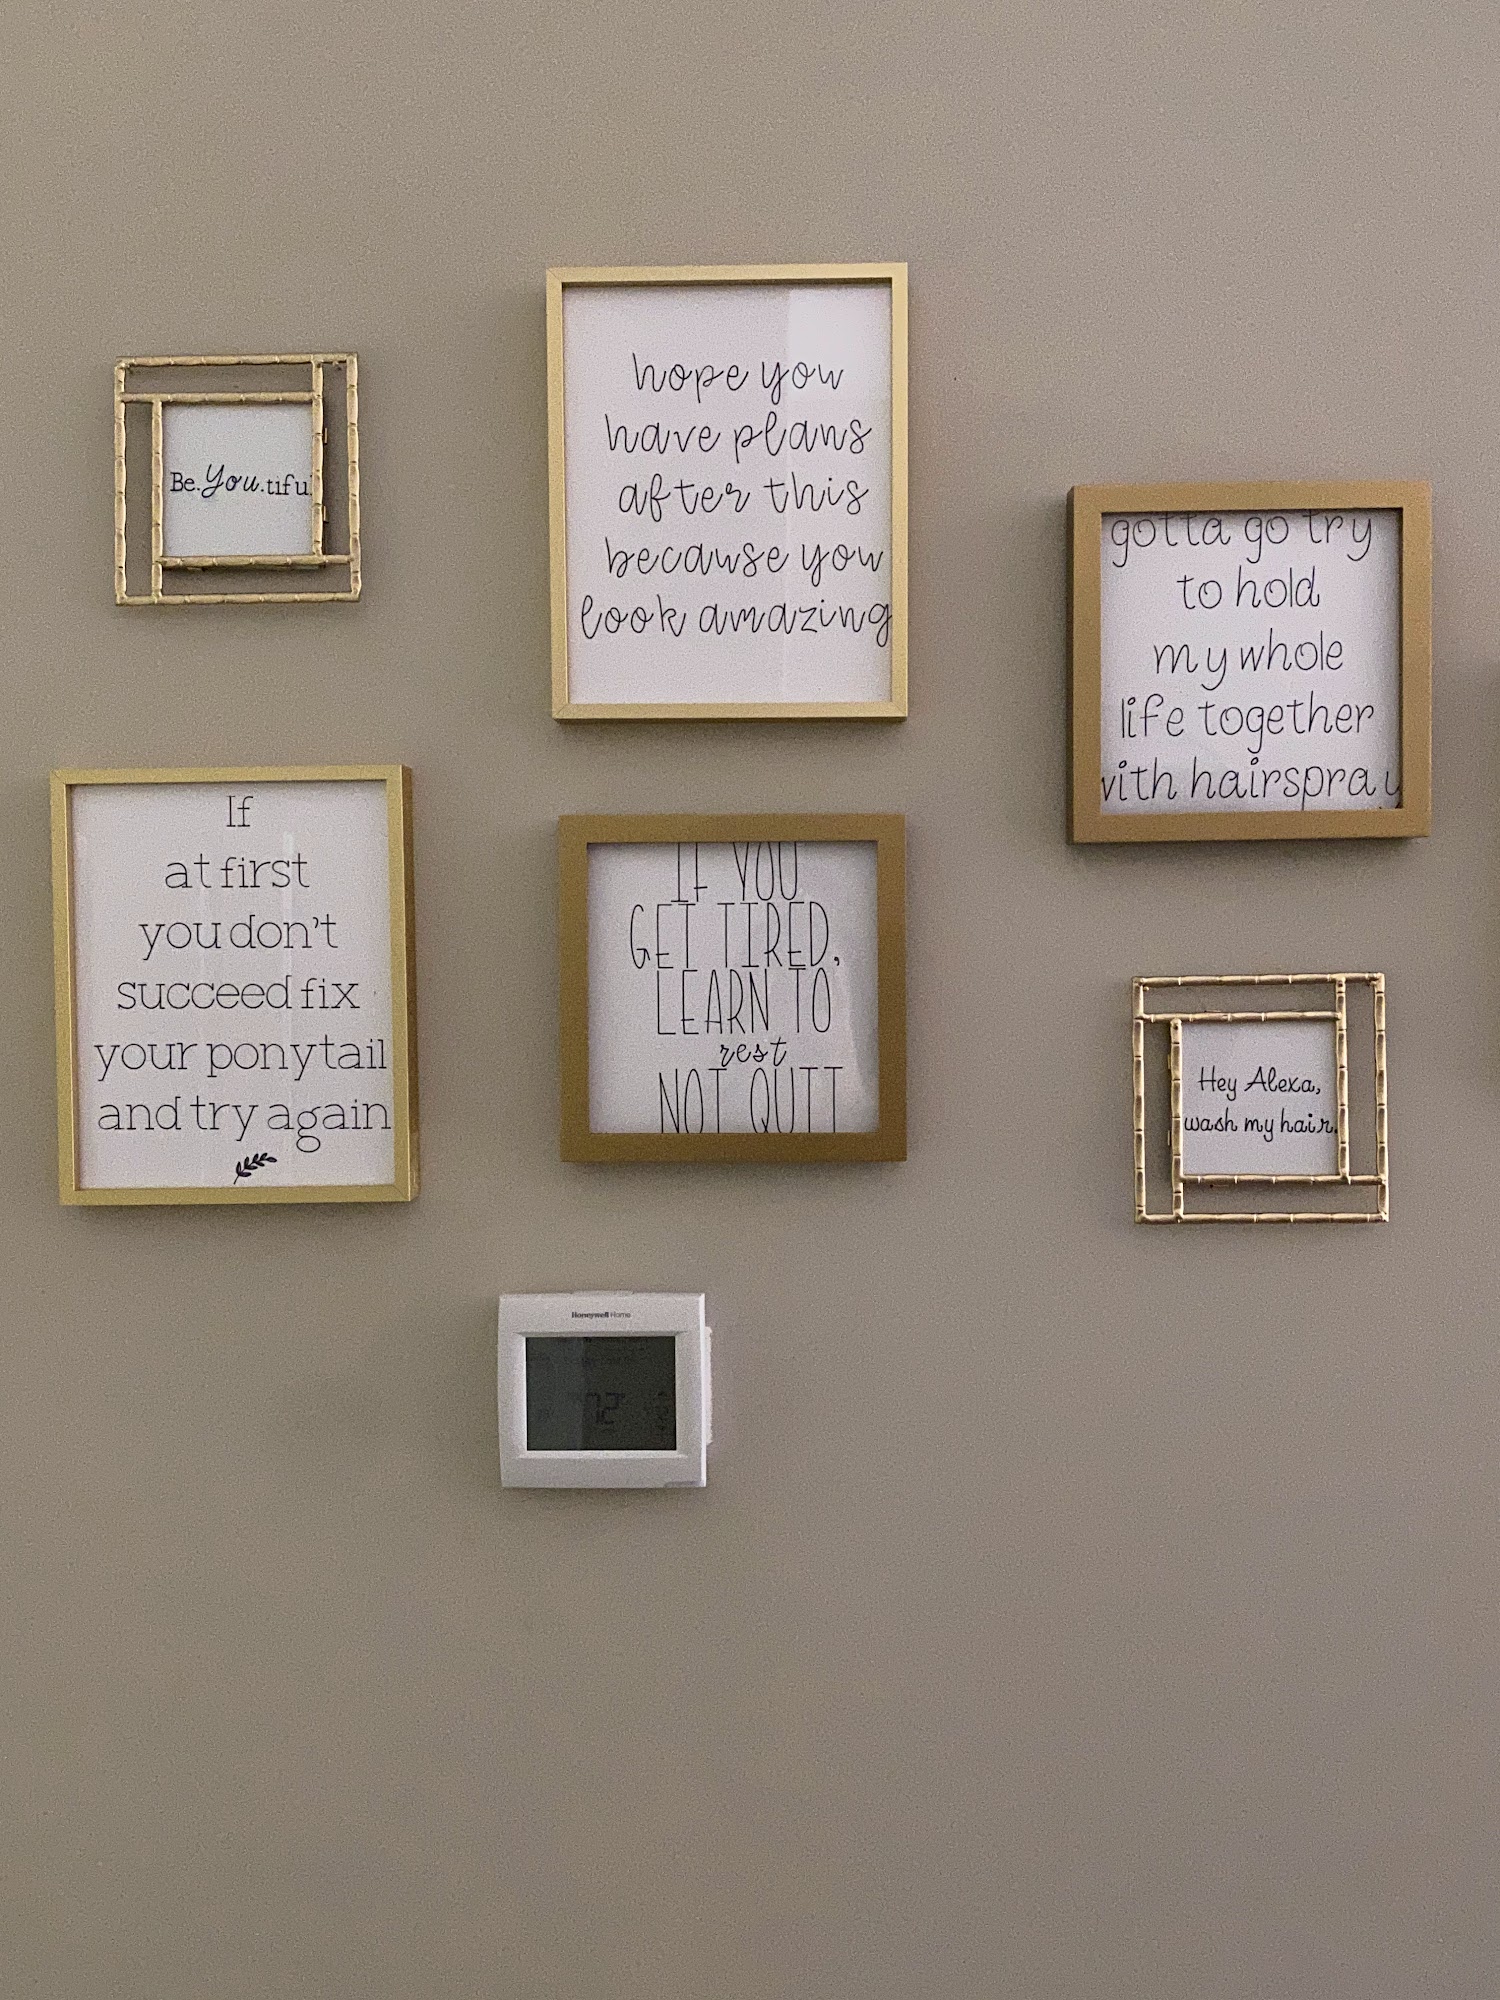 Be.You.tiful
hope you
have plans
after this
because you
look amazing
gotta go try
to hold
my whole
life together
with hairspray
If
at first
you don't
succeed fix
your ponytail
and try again
IF YOU
GET TIRED,
LEARN TO
rest
NOT QUIT
Hey Alexa,
wash my hair.
Honeywell Home
72°